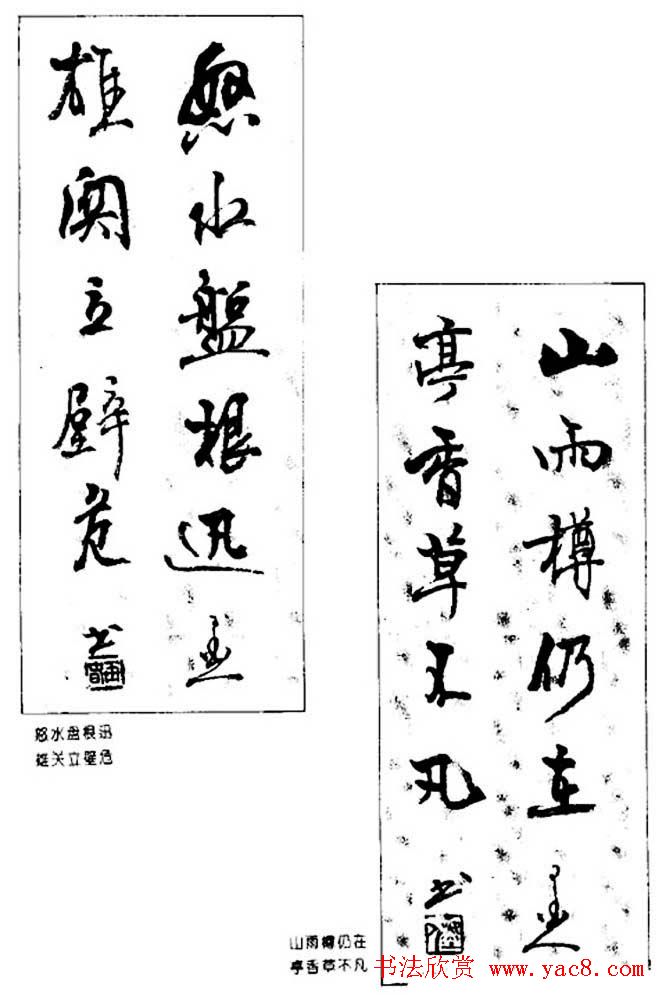 怒水盤根迅
雄関立壁危
书
怒水盘根迅
雄关立壁危
山雨樽仍在
亭香草不凡
书
山雨樽仍在
亭香草不凡
书法欣赏 www.yac8.com